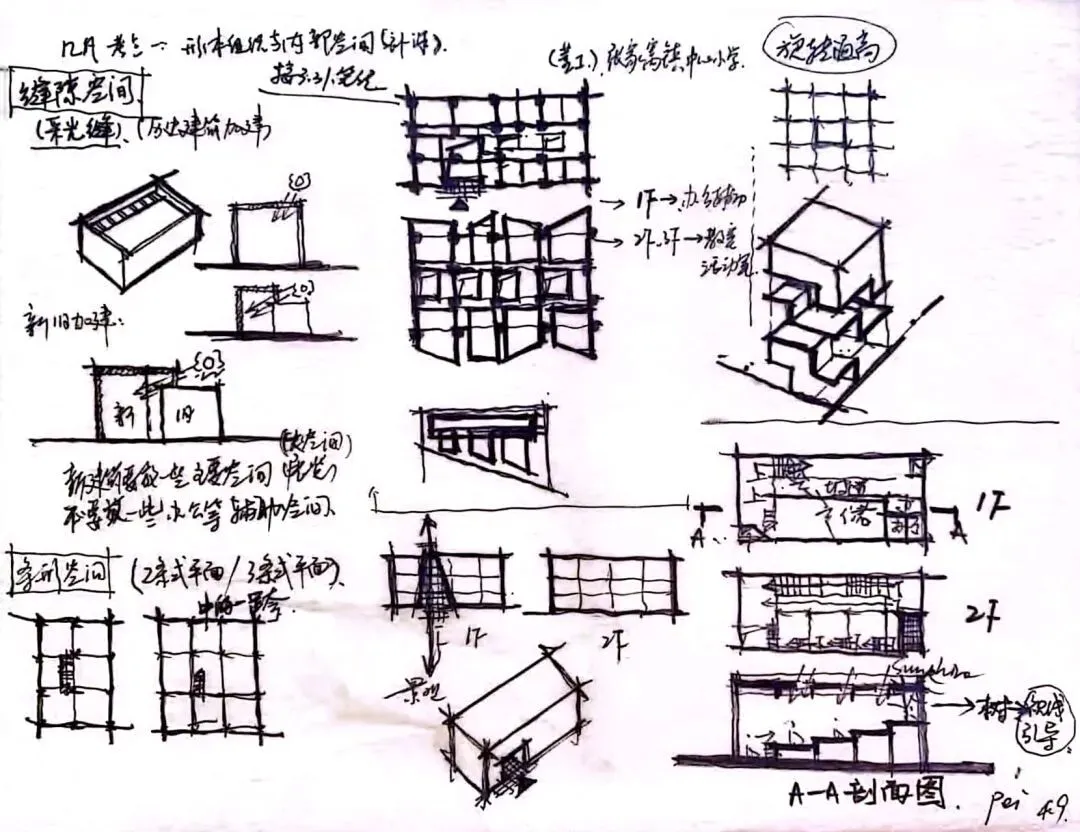 几月 考点一：形体组织与内部空间(计译).
接3.31笔记
缝隙空间
(采光缝)、(历史建筑加建)
新旧加建：
新 旧
(大空间)
新建筑要放一些主要空间 (展览)
不要放一些办公等辅助空间、
条形空间 (2条式平面/3条式平面)、
中的一条
张家窝镇中心小学.
→ 1F→办公辅助
→ 2F、3F→教室
活动室
1F
2F
景观
旋转通高
A A
1F
2F
Sunshine
→树→视线
引导
A-A剖面图.
Pei 4.9.